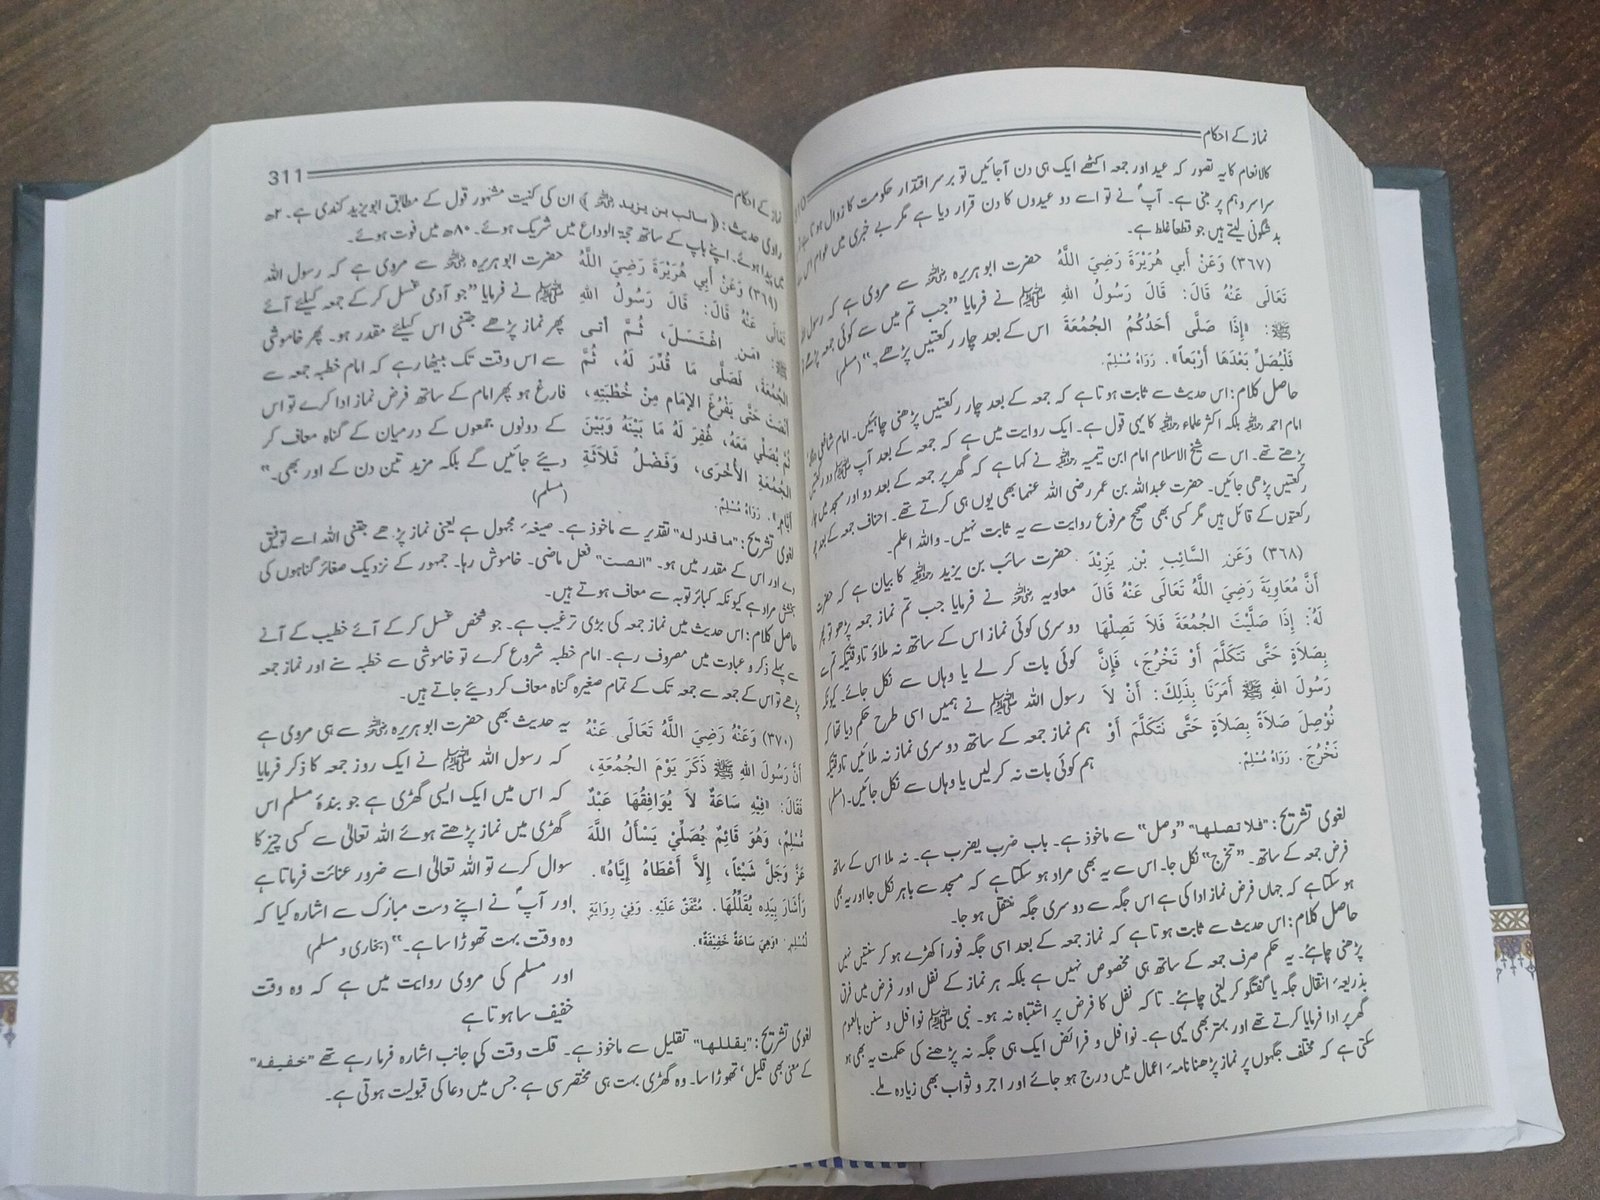 نماز کے احکام
کالانعام کا یہ تصور کہ عید اور جمعہ اکٹھے ایک ہی دن آجائیں تو برسر اقتدار حکومت کا زوال ہوتا ہے
سراسر وہم پر مبنی ہے۔ آپؐ نے تو اسے دو عیدوں کا دن قرار دیا ہے مگر بے خبری میں عوام اس سے
بد شگونی لیتے ہیں جو قطعاً غلط ہے۔
(٣٦٧) وَعَنْ أَبِي هُرَيْرَةَ رَضِيَ اللَّهُ
تَعَالَى عَنْهُ قَالَ: قَالَ رَسُولُ اللهِ
ﷺ: «إِذَا صَلَّى أَحَدُكُمُ الجُمُعَةَ
فَلْيُصَلِّ بَعْدَهَا أَرْبَعاً». رَوَاهُ مُسْلِمٌ.
حضرت ابو ہریرہ رضی اللہ عنہ سے مروی ہے کہ رسول اللہ
ﷺ نے فرمایا ”جب تم میں سے کوئی جمعہ پڑھے
اس کے بعد چار رکعتیں پڑھے۔“ (مسلم)
حاصل کلام: اس حدیث سے ثابت ہوتا ہے کہ جمعہ کے بعد چار رکعتیں پڑھنی چاہئیں۔ امام شافعی
امام احمد رحمۃ اللہ علیہ بلکہ اکثر علماء کا یہی قول ہے۔ ایک روایت میں ہے کہ جمعہ کے بعد آپ ﷺ دو رکعتیں
پڑھتے تھے۔ اس سے شیخ الاسلام امام ابن تیمیہ نے کہا ہے کہ گھر پر جمعہ کے بعد دو اور مسجد میں چار
رکعتیں پڑھی جائیں۔ حضرت عبداللہ بن عمر رضی اللہ عنہما بھی یوں ہی کرتے تھے۔ احناف جمعہ کے بعد
رکعتوں کے قائل ہیں مگر کسی بھی صحیح مرفوع روایت سے یہ ثابت نہیں۔ واللہ اعلم۔
(٣٦٨) وَعَنِ السَّائِبِ بْنِ يَزِيْدَ
أَنَّ مُعَاوِيَةَ رَضِيَ اللَّهُ تَعَالَى عَنْهُ قَالَ
لَهُ: إِذَا صَلَّيْتَ الجُمُعَةَ فَلاَ تَصِلْهَا
بِصَلاَةٍ حَتَّى تَتَكَلَّمَ أَوْ تَخْرُجَ، فَإِنَّ
رَسُولَ اللهِ ﷺ أَمَرَنَا بِذَلِكَ: أَنْ لاَ
نُوْصِلَ صَلاَةً بِصَلاَةٍ حَتَّى نَتَكَلَّمَ أَوْ
نَخْرُجَ. رَوَاهُ مُسْلِمٌ.
حضرت سائب بن یزید رضی اللہ عنہ کا بیان ہے کہ حضرت
معاویہ رضی اللہ عنہ نے فرمایا جب تم نماز جمعہ پڑھو تو پھر
دوسری کوئی نماز اس کے ساتھ نہ ملاؤ تاوقتیکہ تم سے
کوئی بات کر لے یا وہاں سے نکل جائے۔ کیونکہ
رسول اللہ ﷺ نے ہمیں اسی طرح حکم دیا تھا کہ
ہم نماز جمعہ کے ساتھ دوسری نماز نہ ملائیں تاوقتیکہ
ہم کوئی بات نہ کر لیں یا وہاں سے نکل جائیں۔ (مسلم)
لغوی تشریح: "فلا تصلھا" ”وصل“ سے ماخوذ ہے۔ باب ضرب یضرب ہے۔ نہ ملا اس کے ساتھ
فرض جمعہ کے ساتھ۔ ”تخرج“ نکل جا۔ اس سے یہ بھی مراد ہو سکتا ہے کہ مسجد سے باہر نکل جا اور یہ بھی
ہو سکتا ہے کہ جہاں فرض نماز ادا کی ہے اس جگہ سے دوسری جگہ منتقل ہو جا۔
حاصل کلام: اس حدیث سے ثابت ہوتا ہے کہ نماز جمعہ کے بعد اسی جگہ فوراً کھڑے ہو کر سنتیں نہیں
پڑھنی چاہئے۔ یہ حکم صرف جمعہ کے ساتھ ہی مخصوص نہیں ہے بلکہ ہر نماز کے نفل اور فرض میں فرق
بذریعہ انتقال جگہ یا گفتگو کر لینی چاہئے۔ تاکہ نفل کا فرض پر اشتباہ نہ ہو۔ نبی ﷺ نوافل و سنن بالعموم
گھر پر ادا فرمایا کرتے تھے اور بہتر بھی یہی ہے۔ نوافل و فرائض ایک ہی جگہ نہ پڑھنے کی حکمت یہ بھی ہو
سکتی ہے کہ مختلف جگہوں پر نماز پڑھنا نامہ اعمال میں درج ہو جائے اور اجر و ثواب بھی زیادہ ملے۔
نماز کے احکام 311
راوی حدیث: ﴿سائب بن یزید رضی اللہ عنہ﴾ ان کی کنیت مشہور قول کے مطابق ابو یزید کندی ہے۔ ۲ھ
میں پیدا ہوئے۔ اپنے باپ کے ساتھ حجۃ الوداع میں شریک ہوئے۔ ۸۰ھ میں فوت ہوئے۔
(٣٦٩) وَعَنْ أَبِي هُرَيْرَةَ رَضِيَ اللَّهُ
تَعَالَى عَنْهُ قَالَ: قَالَ رَسُولُ اللهِ
ﷺ: «مَنِ اغْتَسَلَ، ثُمَّ أَتَى
الْجُمُعَةَ، فَصَلَّى مَا قُدِّرَ لَهُ، ثُمَّ
أَنْصَتَ حَتَّى يَفْرُغَ الإِمَامُ مِنْ خُطْبَتِهِ،
ثُمَّ يُصَلِّي مَعَهُ، غُفِرَ لَهُ مَا بَيْنَهُ وَبَيْنَ
الْجُمُعَةِ الأُخْرَى، وَفَضْلُ ثَلاَثَةِ
أَيَّامٍ». رَوَاهُ مُسْلِمٌ.
حضرت ابو ہریرہ رضی اللہ عنہ سے مروی ہے کہ رسول اللہ
ﷺ نے فرمایا ”جو آدمی غسل کر کے جمعہ کیلئے آئے
پھر نماز پڑھے جتنی اس کیلئے مقدر ہو۔ پھر خاموشی
سے اس وقت تک بیٹھا رہے کہ امام خطبہ جمعہ سے
فارغ ہو پھر امام کے ساتھ فرض نماز ادا کرے تو اس
کے دونوں جمعوں کے درمیان کے گناہ معاف کر
دیئے جائیں گے بلکہ مزید تین دن کے اور بھی۔“
(مسلم)
لغوی تشریح: "ما قدر له" تقدیر سے ماخوذ ہے۔ صیغہ مجہول ہے یعنی نماز پڑھے جتنی اللہ اسے توفیق
دے اور اس کے مقدر میں ہو۔ "انصت" فعل ماضی۔ خاموش رہا۔ جمہور کے نزدیک صغائر گناہوں کی
بخشش مراد ہے کیونکہ کبائر توبہ سے معاف ہوتے ہیں۔
حاصل کلام: اس حدیث میں نماز جمعہ کی بڑی ترغیب ہے۔ جو شخص غسل کر کے آئے خطیب کے آنے
سے پہلے ذکر و عبادت میں مصروف رہے۔ امام خطبہ شروع کرے تو خاموشی سے خطبہ سنے اور نماز جمعہ
پڑھے تو اس کے جمعہ سے جمعہ تک کے تمام صغیرہ گناہ معاف کر دیئے جاتے ہیں۔
(٣٧٠) وَعَنْهُ رَضِيَ اللَّهُ تَعَالَى عَنْهُ
أَنَّ رَسُولَ اللهِ ﷺ ذَكَرَ يَوْمَ الجُمُعَةِ،
فَقَالَ: «فِيْهِ سَاعَةٌ لاَ يُوَافِقُهَا عَبْدٌ
مُسْلِمٌ، وَهُوَ قَائِمٌ يُصَلِّيْ يَسْأَلُ اللَّهَ
عَزَّ وَجَلَّ شَيْئاً، إِلاَّ أَعْطَاهُ إِيَّاهُ».
وَأَشَارَ بِيَدِهِ يُقَلِّلُهَا. مُتَّفَقٌ عَلَيْهِ. وَفِيْ رِوَايَةٍ
لِمُسْلِمٍ: «وَهِيَ سَاعَةٌ خَفِيْفَةٌ».
یہ حدیث بھی حضرت ابو ہریرہ رضی اللہ عنہ سے ہی مروی ہے
کہ رسول اللہ ﷺ نے ایک روز جمعہ کا ذکر فرمایا
کہ اس میں ایک ایسی گھڑی ہے جو بندۂ مسلم اس
گھڑی میں نماز پڑھتے ہوئے اللہ تعالیٰ سے کسی چیز کا
سوال کرے تو اللہ تعالیٰ اسے ضرور عنائت فرماتا ہے
اور آپؐ نے اپنے دست مبارک سے اشارہ کیا کہ
وہ وقت بہت تھوڑا سا ہے۔“ (بخاری و مسلم)
اور مسلم کی مروی روایت میں ہے کہ وہ وقت
خفیف سا ہوتا ہے
لغوی تشریح: "یقللها" تقلیل سے ماخوذ ہے۔ قلت وقت کی جانب اشارہ فرما رہے تھے "خفیفه"
کے معنی بھی قلیل، تھوڑا سا۔ وہ گھڑی بہت ہی مختصر سی ہے جس میں دعا کی قبولیت ہوتی ہے۔